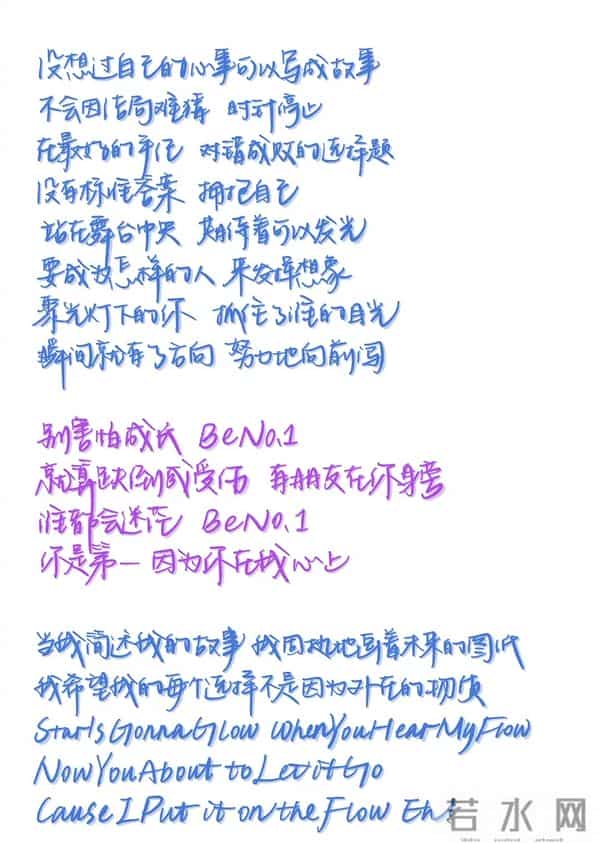 没想过自己的心事可以写成故事
不会因结局难猜 时针停止
在最好的年代 对错成败的选择题
没有标准答案 拥抱自己
站在舞台中央 期待着可以发光
要成为怎样的人 来发挥想象
聚光灯下的你 抓住了谁的目光
瞬间就有了方向 努力地向前闯
别害怕成长 Be No.1
就算跌倒或受伤 有朋友在你身旁
谁都会迷茫 Be No.1
你是第一 因为你在我心上
当我简述我的故事 我固执地画着未来的图纸
我希望我的每个选择不是因为外在的物质
Star Is Gonna Glow When You Hear My Flow
Now You About to Let it Go
Cause I Put it on the Flow Eh!
若水网